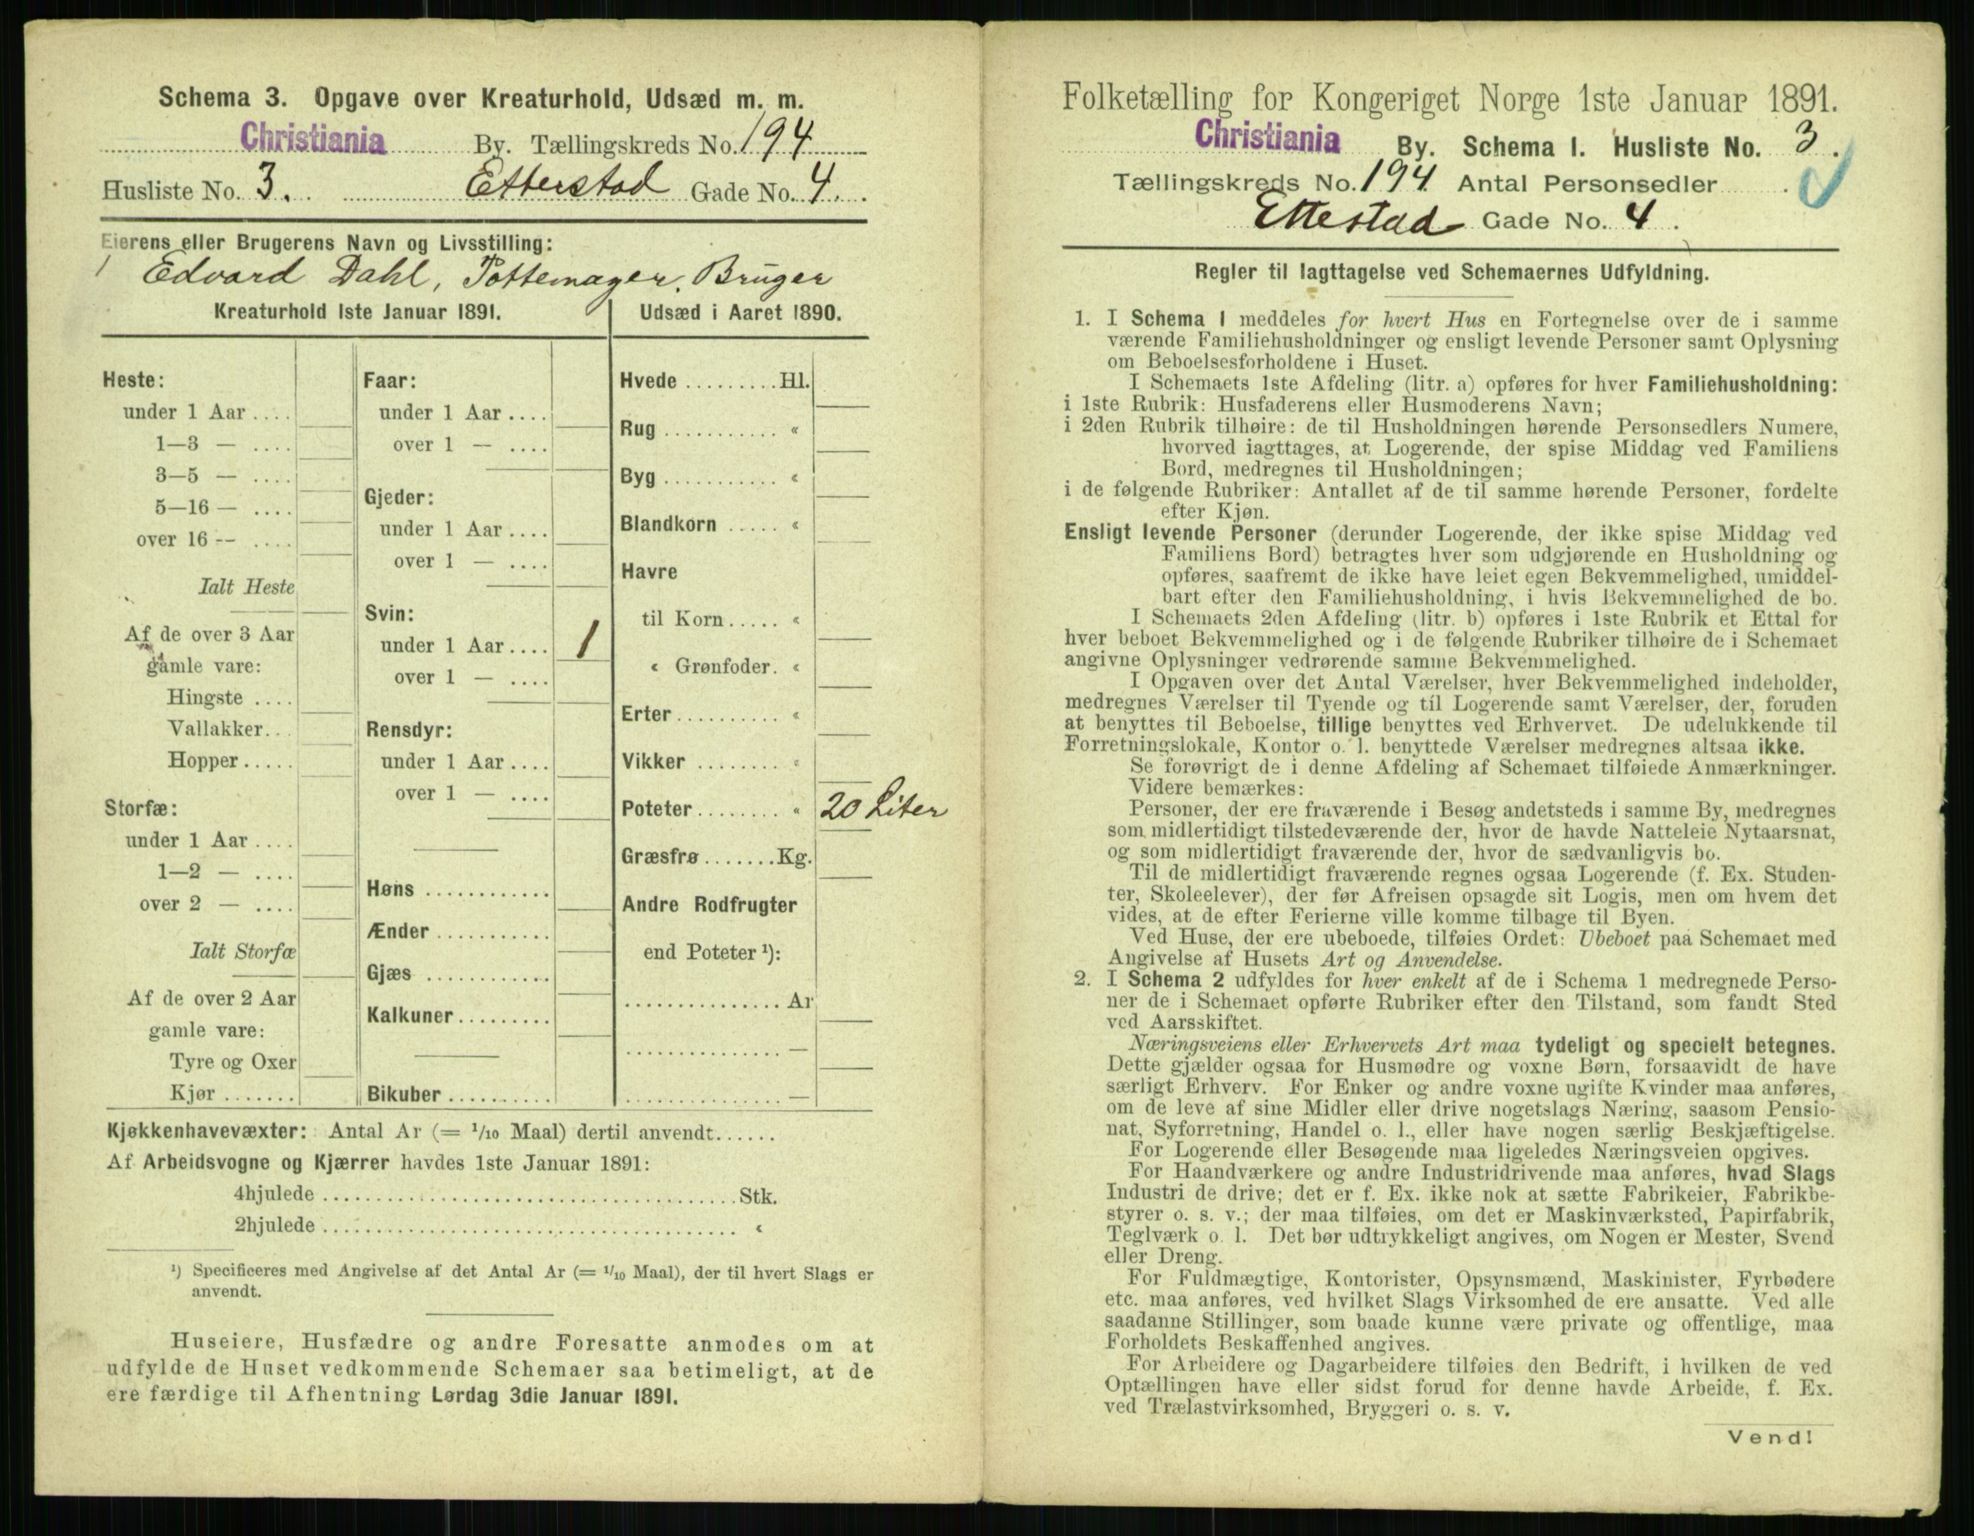 Schema 3. Opgave over Kreaturhold, Udsæd m. m.
Christiania By. Tællingskreds No. 194
Husliste No. 3. Etterstad Gade No. 4.
Eierens eller Brugerens Navn og Livsstilling:
Edvard Dahl, Pottemager, Bruger
Kreaturhold 1ste Januar 1891.
Heste:
under 1 Aar ....
1—3 — ....
3—5 — ....
5—16 — ....
over 16 -- ....
Ialt Heste
Af de over 3 Aar
gamle vare:
Hingste ....
Vallakker...
Hopper.....
Storfæ:
under 1 Aar ....
1—2 — ....
over 2 — ....
Ialt Storfæ
Af de over 2 Aar
gamle vare:
Tyre og Oxer
Kjør .......
Faar:
under 1 Aar ....
over 1 — ....
Gjeder:
under 1 Aar ....
over 1 — ....
Svin:
under 1 Aar .... 1
over 1 — ....
Rensdyr:
under 1 Aar ....
over 1 — ....
Høns ............
Ænder ...........
Gjæs ............
Kalkuner.........
Bikuber ..........
Udsæd i Aaret 1890.
Hvede .........Hl.
Rug ........... «
Byg ........... «
Blandkorn ..... «
Havre
til Korn..... «
« Grønfoder. «
Erter.......... «
Vikker ........ «
Poteter ........ « 20 Liter
Græsfrø.......Kg.
Andre Rodfrugter
end Poteter ¹):
............... Ar
............... —
............... —
Kjøkkenhavevæxter: Antal Ar (= 1/10 Maal) dertil anvendt......
Af Arbeidsvogne og Kjærrer havdes 1ste Januar 1891:
4hjulede ........................................Stk.
2hjulede ........................................ «
¹) Specificeres med Angivelse af det Antal Ar (= 1/10 Maal), der til hvert Slags er
anvendt.
Huseiere, Husfædre og andre Foresatte anmodes om at
udfylde de Huset vedkommende Schemaer saa betimeligt, at de
ere færdige til Afhentning Lørdag 3die Januar 1891.
Folketælling for Kongeriget Norge 1ste Januar 1891.
Christiania By. Schema I. Husliste No. 3.
Tællingskreds No. 194 Antal Personsedler .
Ettestad Gade No. 4.
Regler til Iagttagelse ved Schemaernes Udfyldning.
1. I Schema 1 meddeles for hvert Hus en Fortegnelse over de i samme
værende Familiehusholdninger og ensligt levende Personer samt Oplysning
om Beboelsesforholdene i Huset.
I Schemaets 1ste Afdeling (litr. a) opføres for hver Familiehusholdning:
i 1ste Rubrik: Husfaderens eller Husmoderens Navn;
i 2den Rubrik tilhøire: de til Husholdningen hørende Personsedlers Numere,
hvorved iagttages, at Logerende, der spise Middag ved Familiens
Bord, medregnes til Husholdningen;
i de følgende Rubriker: Antallet af de til samme hørende Personer, fordelte
efter Kjøn.
Ensligt levende Personer (derunder Logerende, der ikke spise Middag ved
Familiens Bord) betragtes hver som udgjørende en Husholdning og
opføres, saafremt de ikke have leiet egen Bekvemmelighed, umiddel-
bart efter den Familiehusholdning, i hvis Bekvemmelighed de bo.
I Schemaets 2den Afdeling (litr. b) opføres i 1ste Rubrik et Ettal for
hver beboet Bekvemmelighed og i de følgende Rubriker tilhøire de i Schemaet
angivne Oplysninger vedrørende samme Bekvemmelighed.
I Opgaven over det Antal Værelser, hver Bekvemmelighed indeholder,
medregnes Værelser til Tyende og til Logerende samt Værelser, der, foruden
at benyttes til Beboelse, tillige benyttes ved Erhvervet. De udelukkende til
Forretningslokale, Kontor o. l. benyttede Værelser medregnes altsaa ikke.
Se forøvrigt de i denne Afdeling af Schemaet tilføiede Anmærkninger.
Videre bemærkes:
Personer, der ere fraværende i Besøg andetsteds i samme By, medregnes
som midlertidigt tilstedeværende der, hvor de havde Natteleie Nytaarsnat,
og som midlertidigt fraværende der, hvor de sædvanligvis bo.
Til de midlertidigt fraværende regnes ogsaa Logerende (f. Ex. Studen-
ter, Skoleelever), der før Afreisen opsagde sit Logis, men om hvem det
vides, at de efter Ferierne ville komme tilbage til Byen.
Ved Huse, der ere ubeboede, tilføies Ordet: Ubeboet paa Schemaet med
Angivelse af Husets Art og Anvendelse.
2. I Schema 2 udfyldes for hver enkelt af de i Schema 1 medregnede Perso-
ner de i Schemaet opførte Rubriker efter den Tilstand, som fandt Sted
ved Aarsskiftet.
Næringsveiens eller Erhvervets Art maa tydeligt og specielt betegnes.
Dette gjælder ogsaa for Husmødre og voxne Børn, forsaavidt de have
særligt Erhverv. For Enker og andre voxne ugifte Kvinder maa anføres,
om de leve af sine Midler eller drive nogetslags Næring, saasom Pensio-
nat, Syforretning, Handel o. l., eller have nogen særlig Beskjæftigelse.
For Logerende eller Besøgende maa ligeledes Næringsveien opgives.
For Haandværkere og andre Industridrivende maa anføres, hvad Slags
Industri de drive; det er f. Ex. ikke nok at sætte Fabrikeier, Fabrikbe-
styrer o. s. v.; der maa tilføies, om det er Maskinværksted, Papirfabrik,
Teglværk o. l. Det bør udtrykkeligt angives, om Nogen er Mester, Svend
eller Dreng.
For Fuldmægtige, Kontorister, Opsynsmænd, Maskinister, Fyrbødere
etc. maa anføres, ved hvilket Slags Virksomhed de ere ansatte. Ved alle
saadanne Stillinger, som baade kunne være private og offentlige, maa
Forholdets Beskaffenhed angives.
For Arbeidere og Dagarbeidere tilføies den Bedrift, i hvilken de ved
Optællingen have eller sidst forud for denne havde Arbeide, f. Ex.
ved Trælastvirksomhed, Bryggeri o. s. v.
Vend!